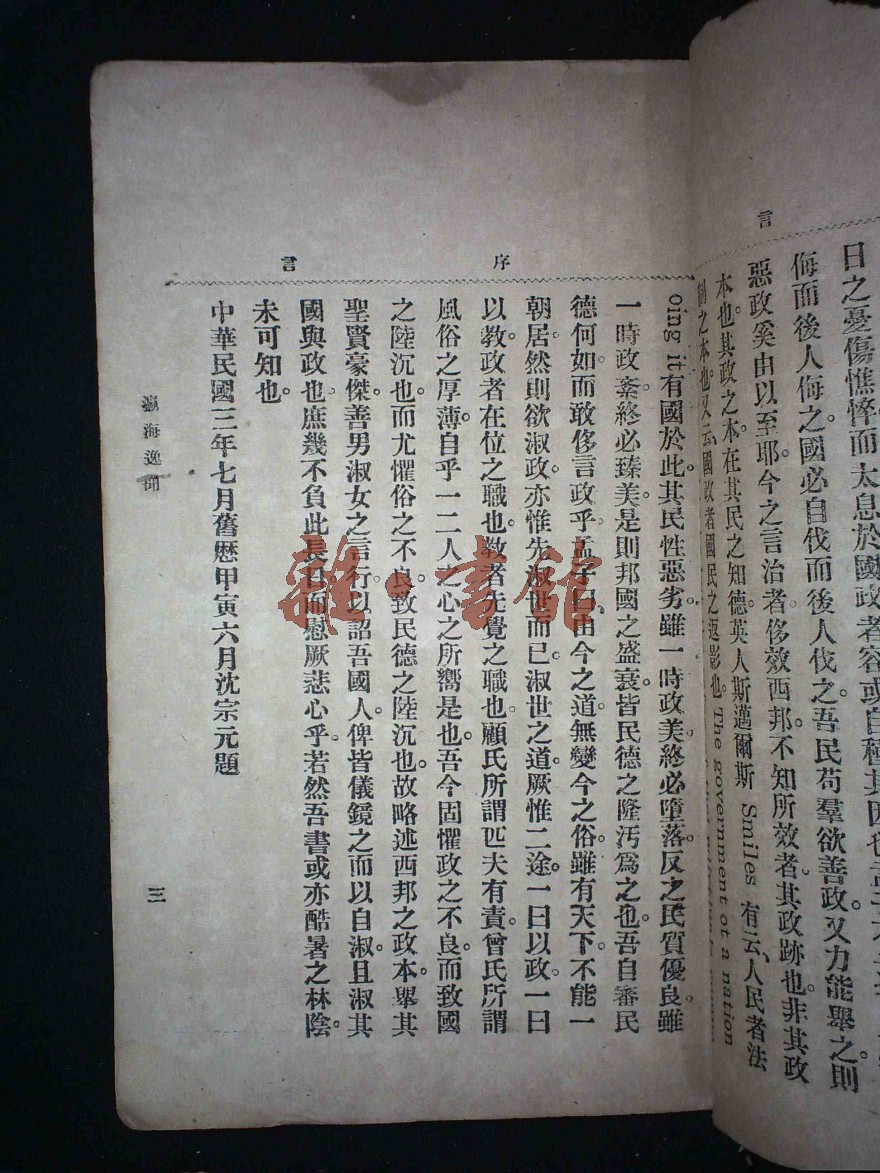 言
日之憂傷憔悴而太息於國政者容或自種其因也
侮而後人侮之國必自伐而後人伐之吾民苟羣欲善政又力能舉之則
惡政奚由以至耶今之言治者侈效西邦不知所效者其政跡也非其政
本也其政之本在其民之知德英人斯邁爾斯 Smiles 有云人民者法
制之本也又云國政者國民之返影也 The government of a nation
序言
oing it有國於此其民性惡劣雖一時政美終必墮落反之民質優良雖
一時政紊終必臻美是則邦國之盛衰皆民德之隆汚爲之也吾自審民
德何如而敢侈言政乎孟子曰由今之道無變今之俗雖有天下不能一
朝居然則欲淑政亦惟先淑世而已淑世之道厥惟二途一曰以政一曰
以教政者在位之職也教者先覺之職也顧氏所謂匹夫有責曾氏所謂
風俗之厚薄自乎一二人之心之所嚮是也吾今固懼政之不良而致國
之陸沉也而尤懼俗之不良致民德之陸沉也故略述西邦之政本舉其
聖賢豪傑善男淑女之言行以詔吾國人俾皆儀鏡之而以自淑且淑其
國與政也庶幾不負此長日而慰厥悲心乎若然吾書或亦酷暑之林陰
未可知也
中華民國三年七月舊歷甲寅六月沈宗元題
瀛海逸聞
三
雜·書館